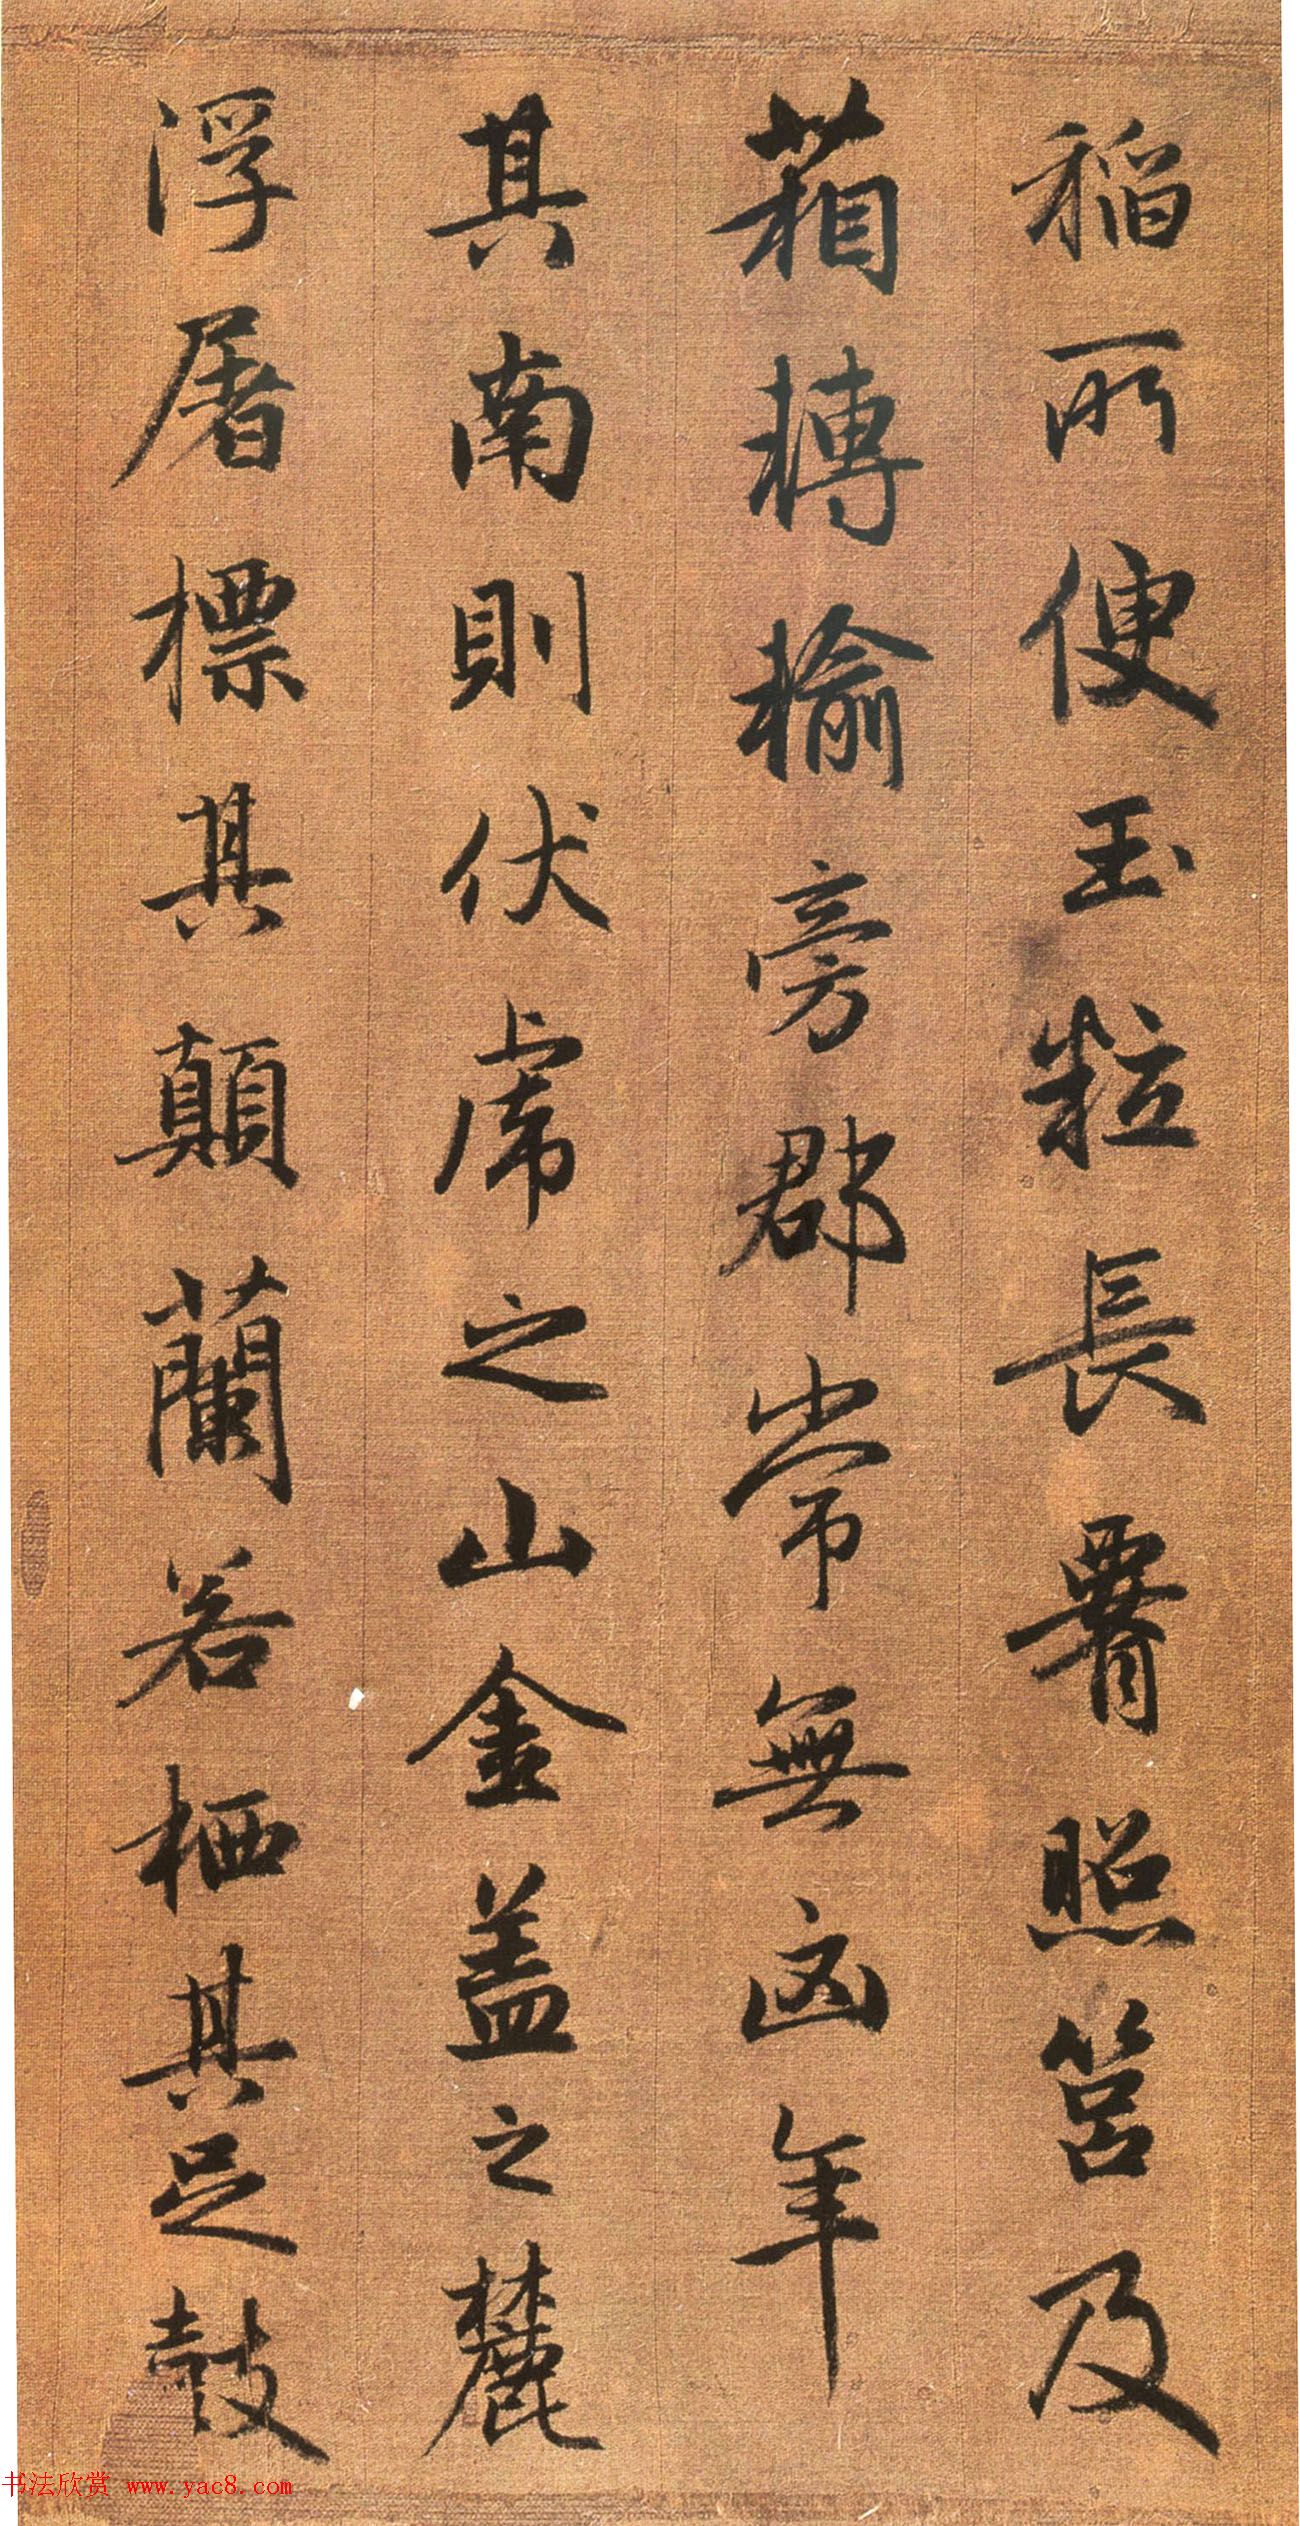 稻所便玉粒長賮照筥及
葙轉榆旁郡常無凶年
其南則伏虎之山金蓋之麓
浮屠標其顛蘭若栖其足鼓
书法欣赏 www.yac8.com